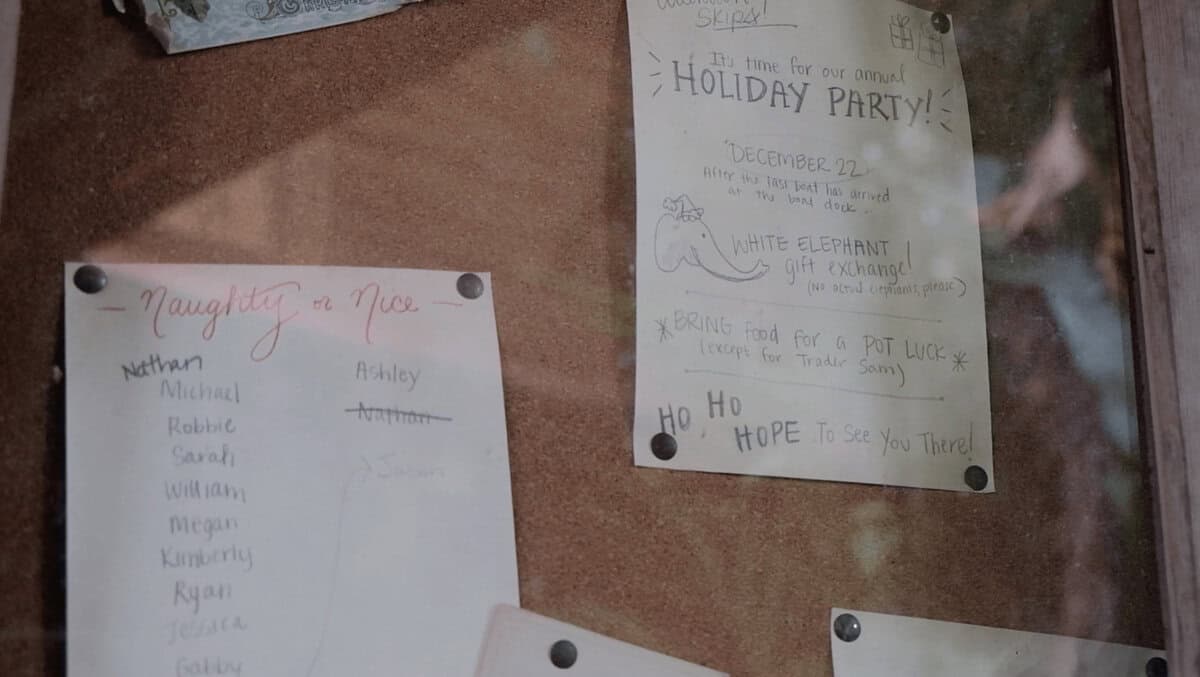 Skips!
It's time for our annual
HOLIDAY PARTY!
DECEMBER 22
After the last boat has arrived
at the boat dock..
WHITE ELEPHANT
gift exchange!
(No actual elephants, please)
*BRING Food For a POT LUCK*
(except for Trader Sam)
HO, HO
HOPE To See You There!
- Naughty or Nice -
Nathan
Michael
Robbie
Sarah
William
Megan
Kimberly
Ryan
Jessica
Gabby
Ashley
Nathan
Jason